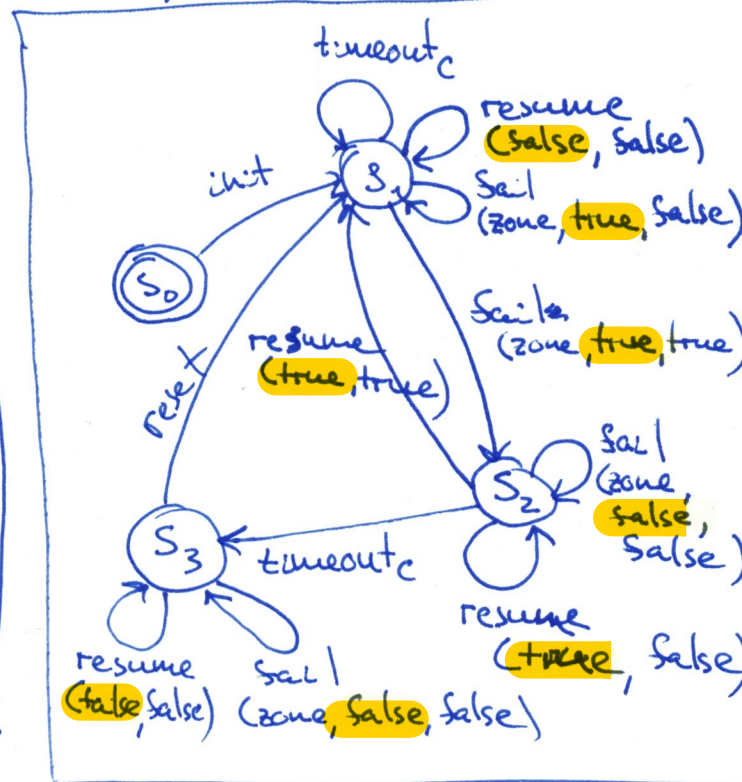 timeout_c
resume
(false, false)
init
S₁
fail
(zone, true, false)
S₀
fail
(zone, true, true)
resume
(true, true)
reset
fail
(zone,
false,
false)
S₂
S₃
timeout_c
resume
(true, false)
resume
(false, false)
fail
(zone, false, false)